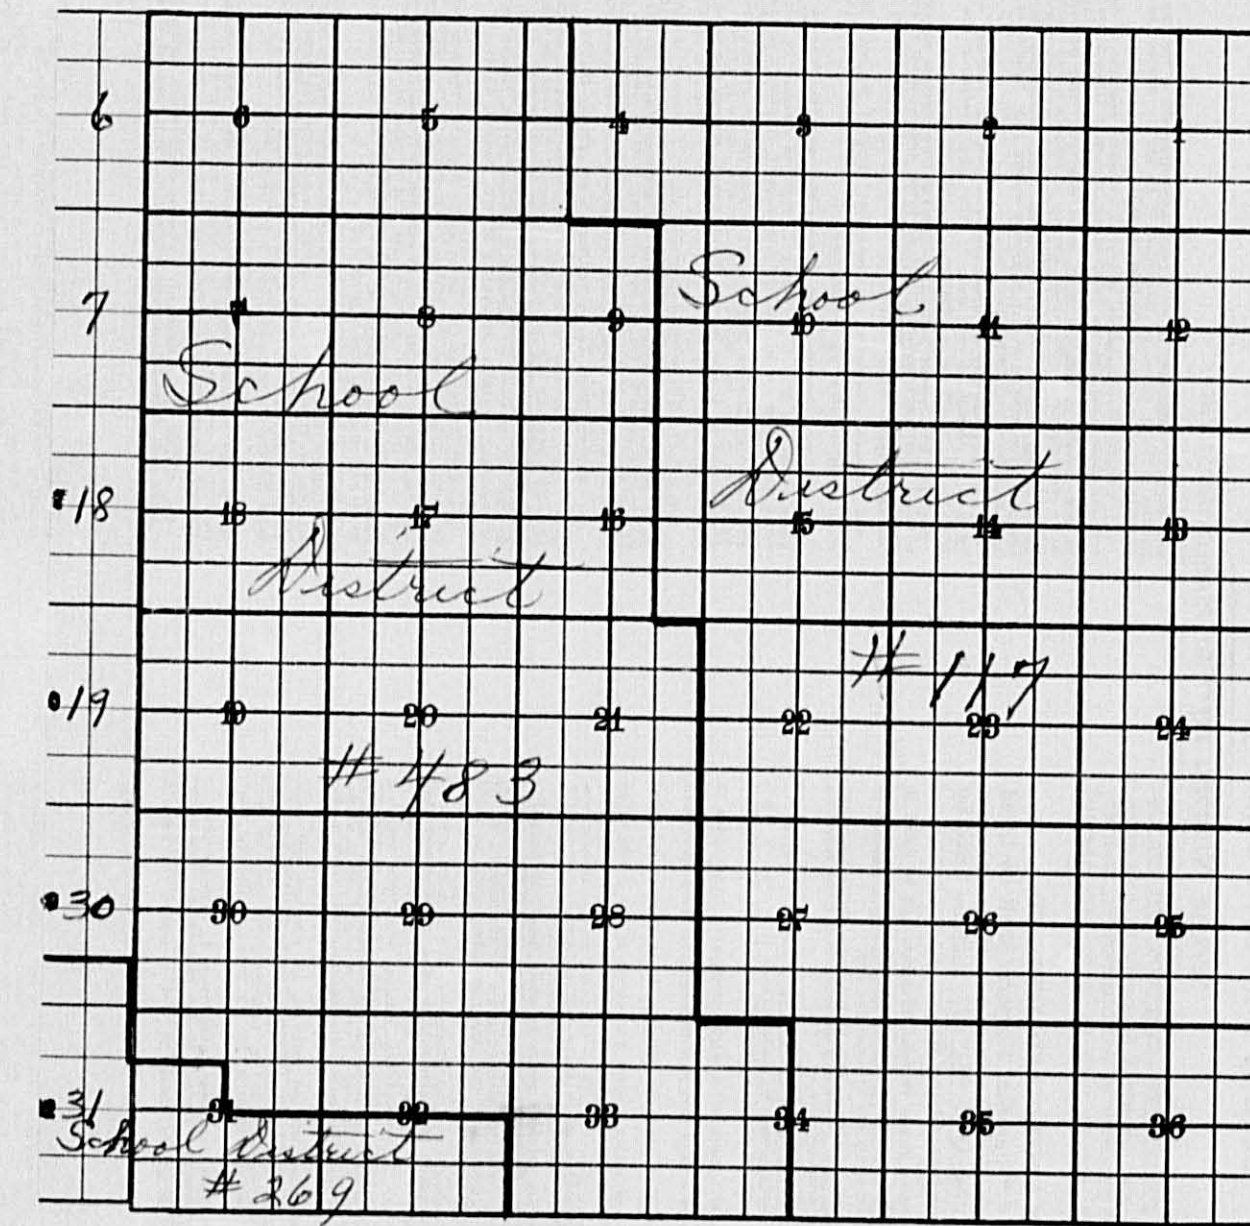 6 6 5 4 3 2 1
School
7 7 8 9 10 11 12
School
District
18 18 17 16 15 14 13
District
# 117
19 19 20 21 22 23 24
# 483
30 30 29 28 27 26 25
31 31 32 33 34 35 36
School District
# 269